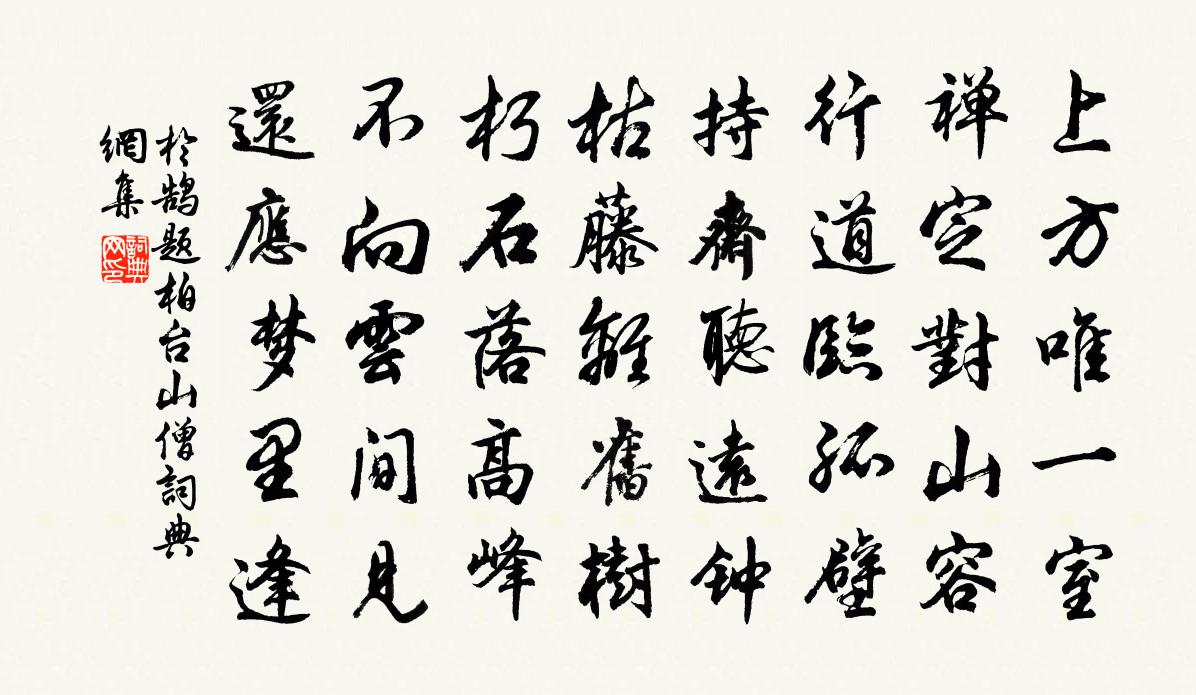 上方唯一室
禅定對山容
行道臨孤壁
持齋聽遠钟
枯藤離舊樹
朽石落高峰
不向雲間見
還應梦里逢
於鵠題柏台山僧詞典
網集
詞典网印